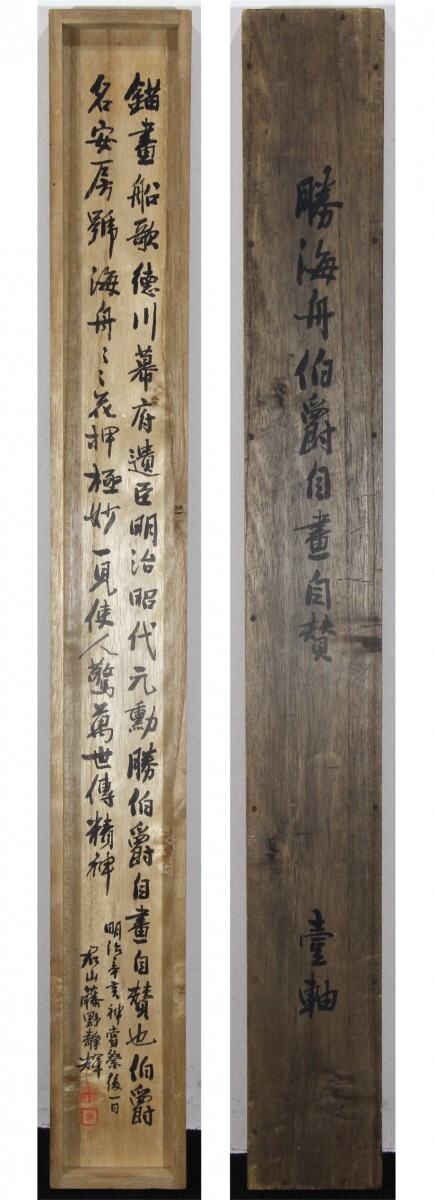 錨畫船歌德川幕府遺臣明治昭代元勳勝伯爵自畫自賛也伯爵
名安房號海舟〻花押極妙一見使人驚萬世傳精神
明治辛亥神嘗祭後一日
君山藤野靜輝
勝海舟伯爵自畫自賛
壹軸